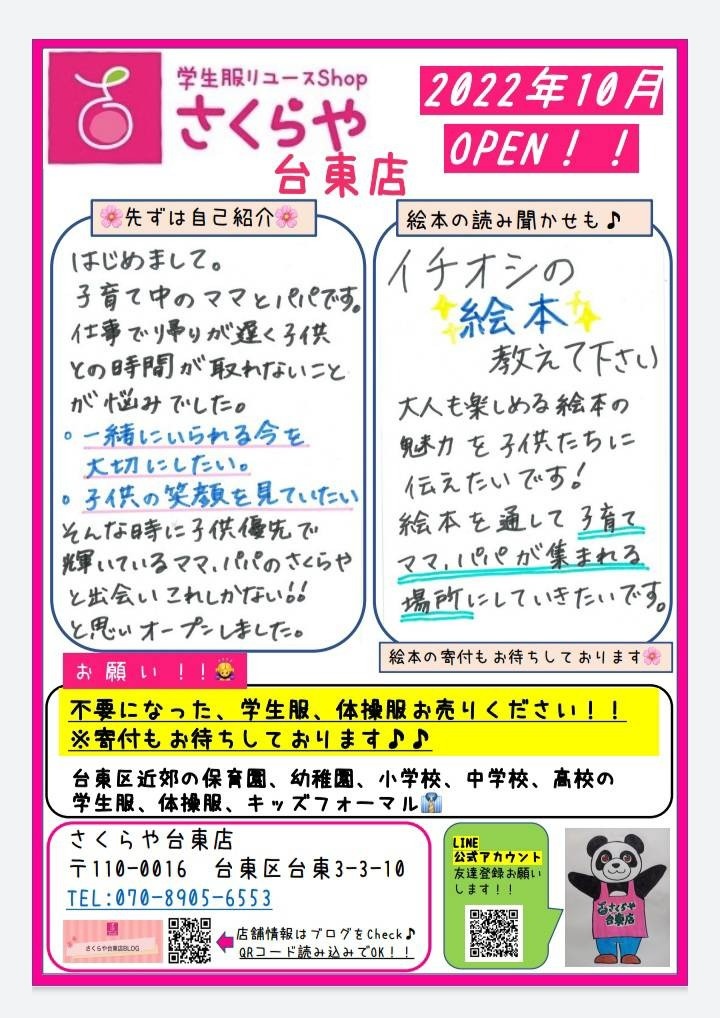 学生服リユースShop
さくらや
台東店
2022年10月
OPEN！！
🌸先ずは自己紹介🌸
はじめまして。
子育て中のママとパパです。
仕事で帰りが遅く子供
との時間が取れないこと
が悩みでした。
。一緒にいられる今を
大切にしたい。
。子供の笑顔を見ていたい
そんな時に子供優先で
輝いているママ、パパのさくらや
と出会いこれしかない!!
と思いオープンしました。
絵本の読み聞かせも♪
イチオシの
絵本
教えて下さい
大人も楽しめる絵本の
魅力を子供たちに
伝えたいです!
絵本を通して子育て
ママ、パパが集まれる
場所にしていきたいです。
絵本の寄付もお待ちしております🌸
お願い！！
不要になった、学生服、体操服お売りください！！
※寄付もお待ちしております♪♪
台東区近郊の保育園、幼稚園、小学校、中学校、高校の
学生服、体操服、キッズフォーマル
さくらや台東店
〒110-0016　台東区台東3-3-10
TEL:070-8905-6553
さくらや台東店BLOG
店舗情報はブログをCheck♪
QRコード読み込みでOK！！
LINE
公式アカウント
友達登録お願い
します！！
さくらや
台東店